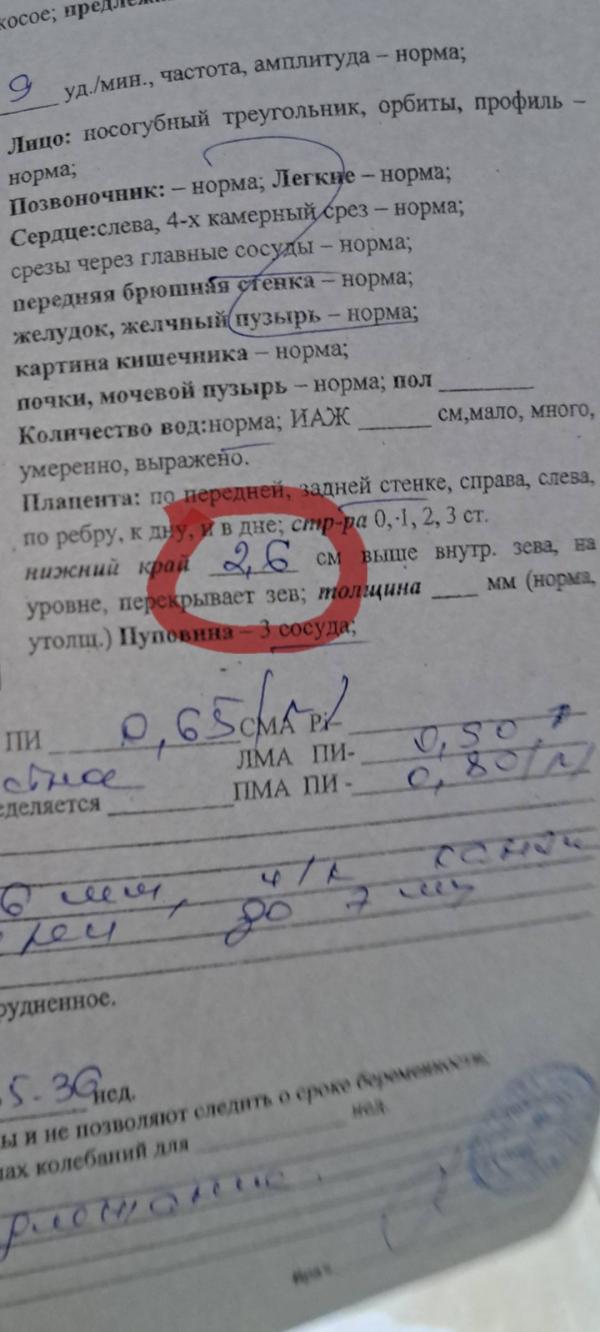 косое;
9 уд./мин., частота, амплитуда – норма;
Лицо: носогубный треугольник, орбиты, профиль –
норма;
Позвоночник: – норма; Легкие – норма;
Сердце:слева, 4-х камерный срез – норма;
срезы через главные сосуды – норма;
передняя брюшная стенка – норма;
желудок, желчный пузырь – норма;
картина кишечника – норма;
почки, мочевой пузырь – норма; пол
Количество вод:норма; ИАЖ см,мало, много,
умеренно, выражено.
Плацента: по передней, задней стенке, справа, слева,
по ребру, к дну, и в дне; стр-ра 0, 1, 2, 3 ст.
нижний край 2,6 см выше внутр. зева, на
уровне, перекрывает зев; толщина мм (норма,
утолщ.) Пуповина – 3 сосуда;
ПИ 0,65 СМА
ЛМА ПИ-
ПМА ПИ - 0,80
до 7
36 нед.
ы и не позволяют следить о сроке беременности,
колебаний для нед.